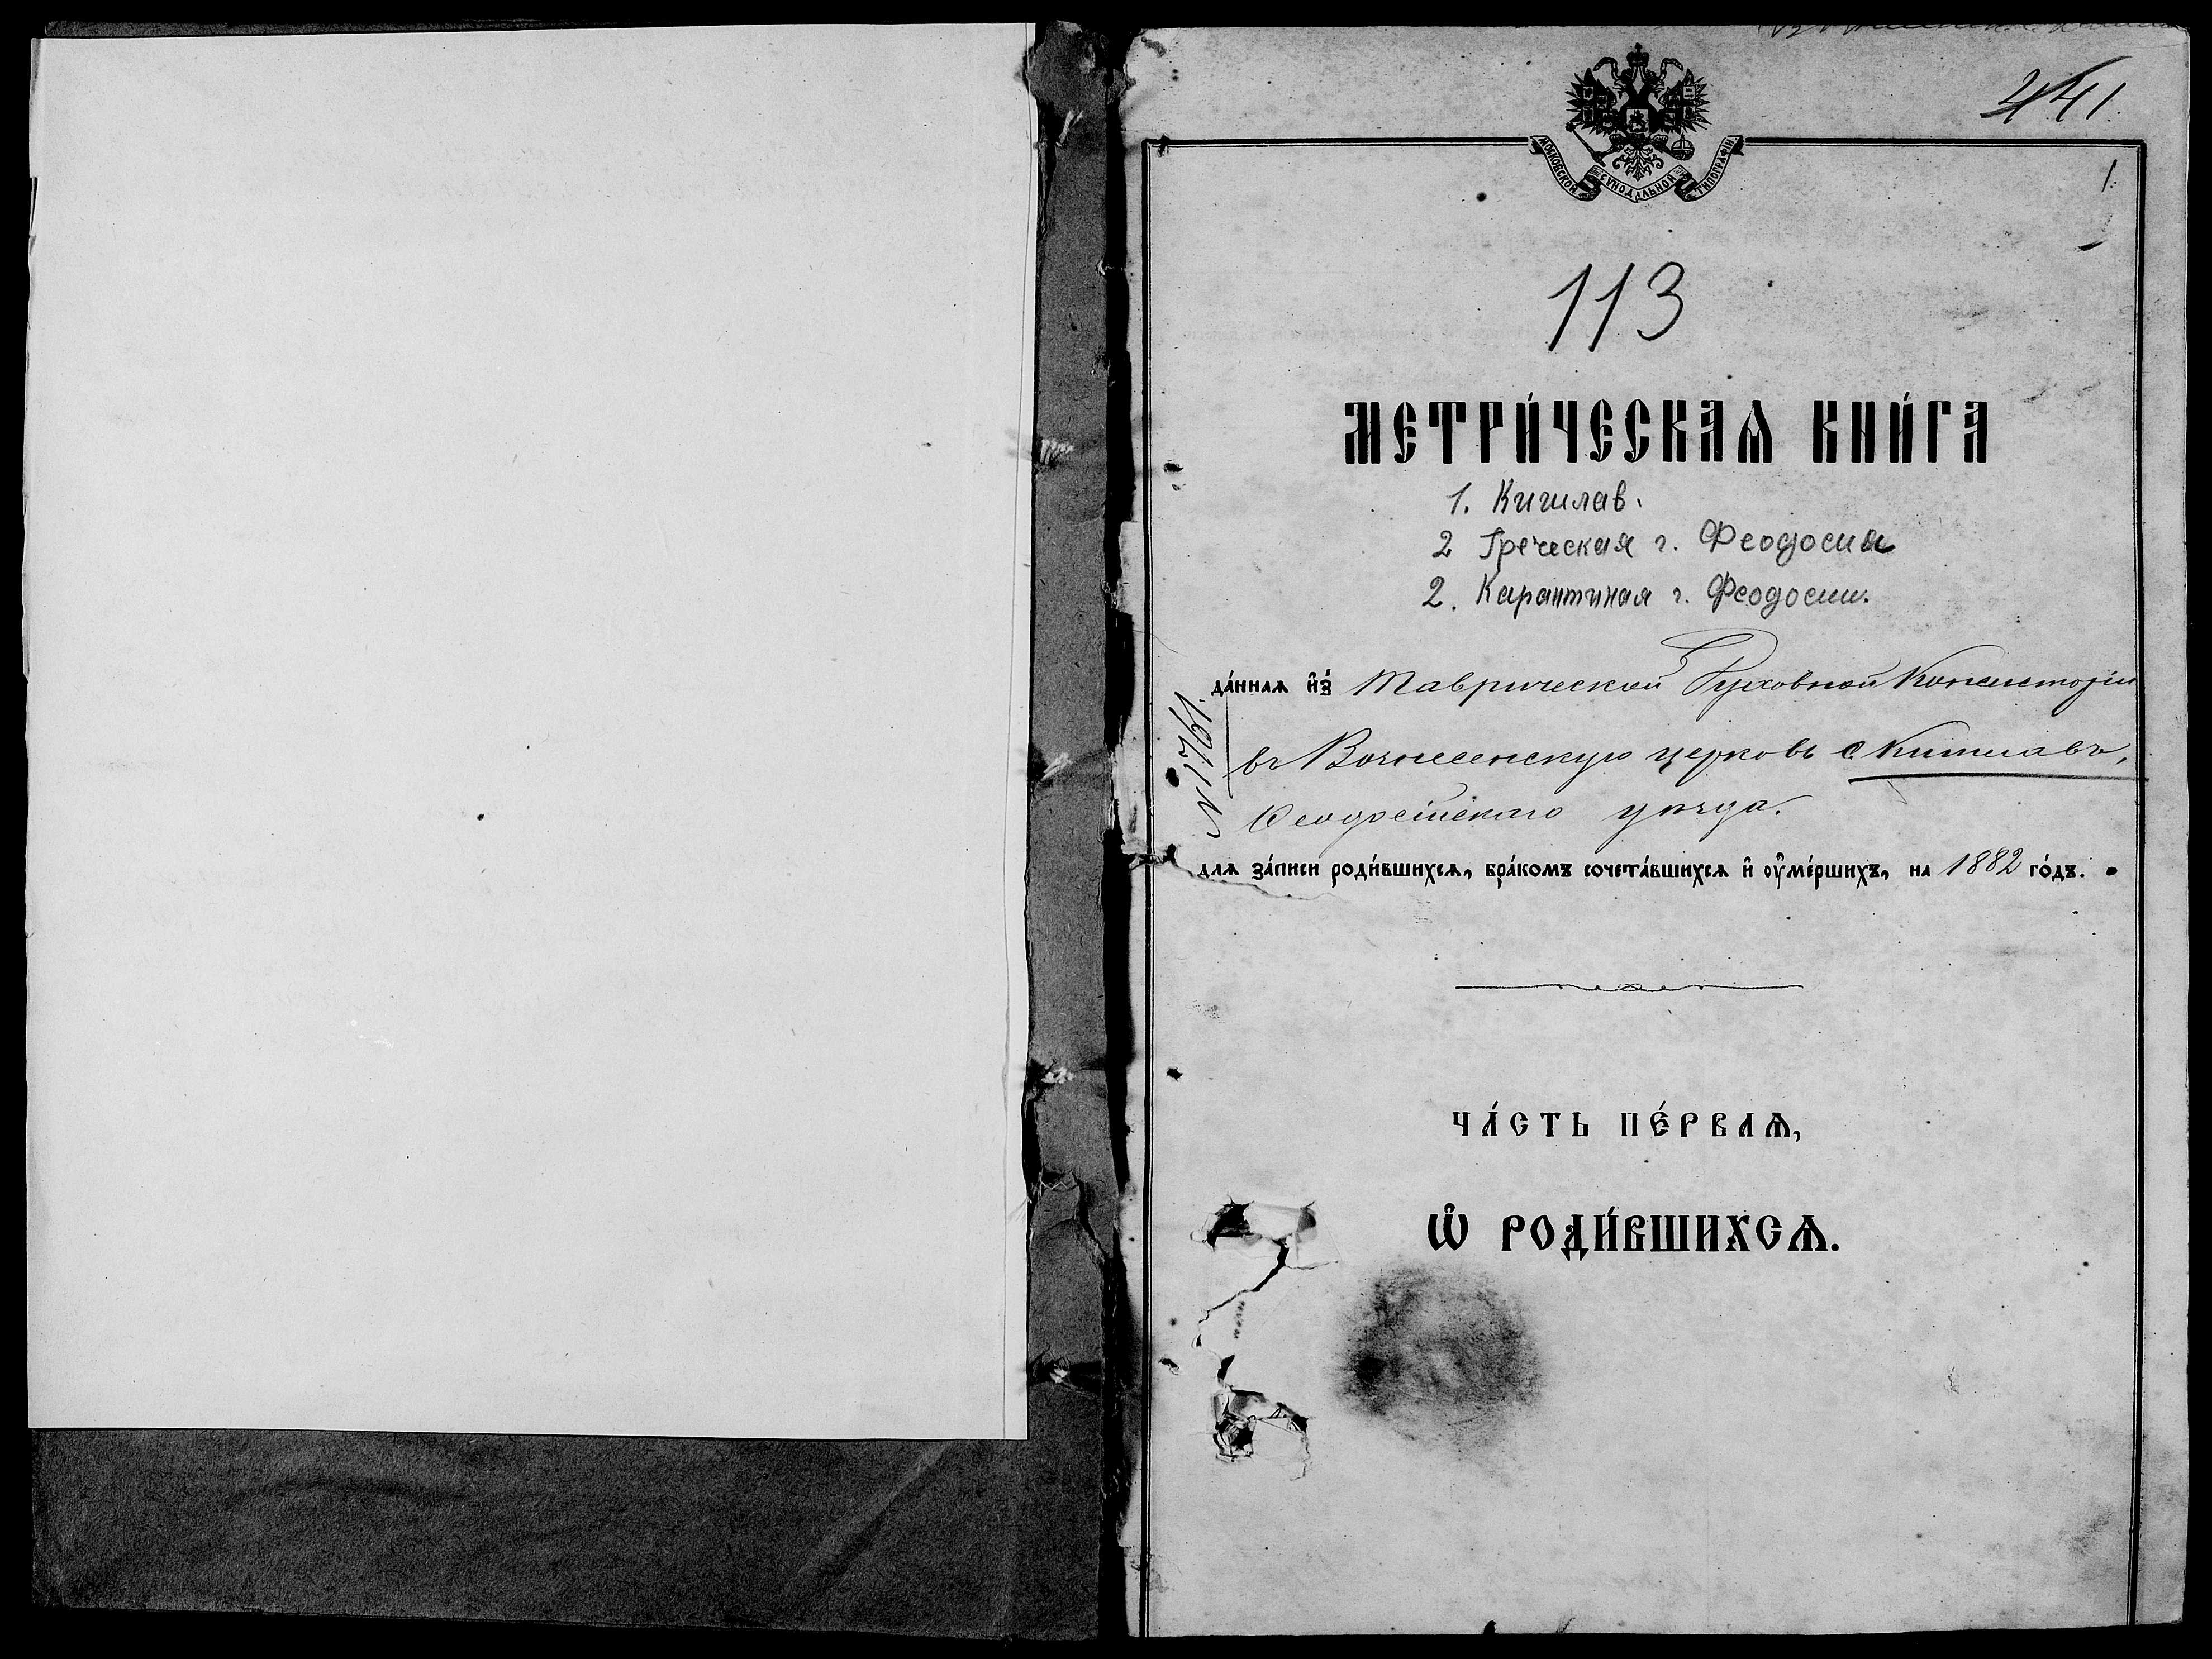 441.
МОСКОВСКОЙ СѴНОДАЛЬНОЙ ТИПОГРАФІИ
1.
113
МЕТРИ́ЧЕСКАѦ КНИ́ГА
1. Кишлав.
2 Греческая г. Феодосия
2. Карантиная г. Феодосии.
да́ннаѧ и҆з̾ Таврической Духовной Консисторіи
въ Вознесенскую церковь с Кишлавъ,
Ѳеодосійскаго уѣзда.
№ 15761.
для за́писи роди́вшихсѧ, бра́комъ сочета́вшихсѧ и҆ оу҆ме́ршихъ, на 1882 го́дъ.
ЧА́СТЬ ПЕ́РВАѦ,
Ѡ҆ РОДИ́ВШИХСѦ.